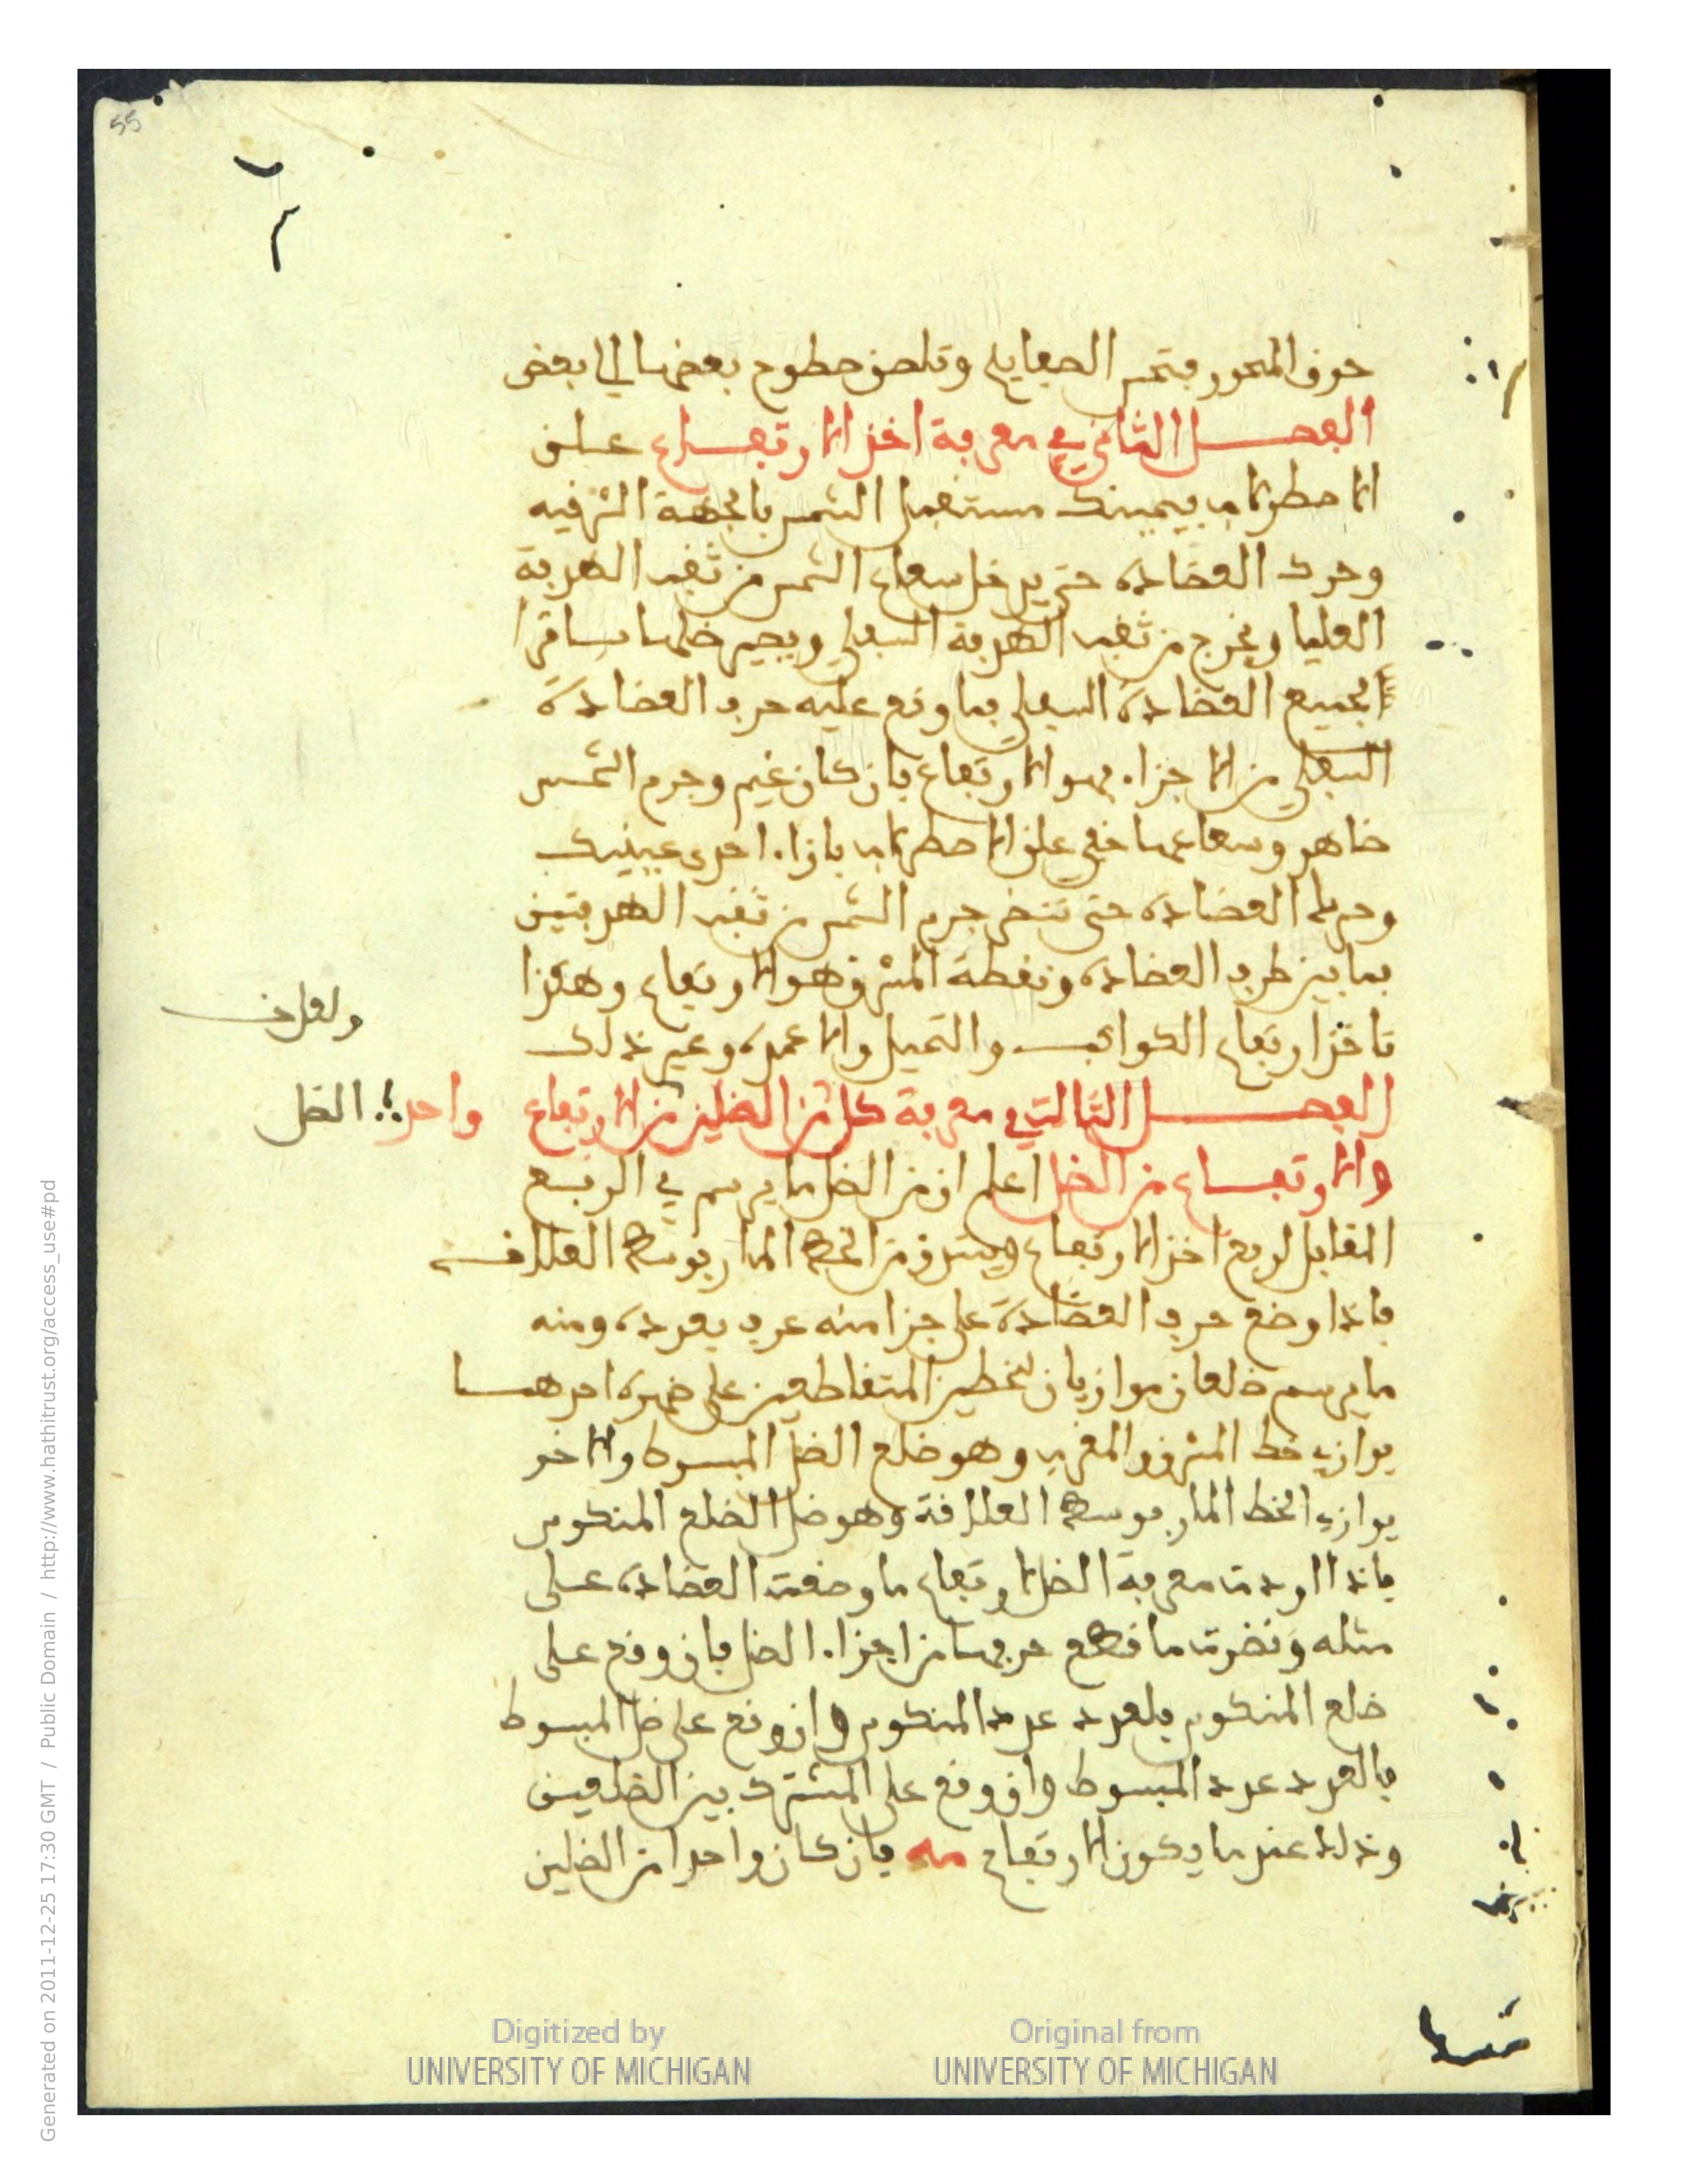 55
جوف المحور فتمس الصفايح وتلصق سطوح بعضها الى بعض
الفصل الثاني في معرفة اخذ الارتفاع علق
الاسطرلاب بيمينك مستقبل الشمس بالجهة الشرقيه
وحرك العضادة حتى يدخل شعاع الشمس من ثقب الهدفة
العليا ويخرج من ثقب الهدفة السفلى ويصير ظلها ساترا
لجميع العضادة السفلى فما وقع عليه حرف العضادة
السفلى من الاجزاء فهو الارتفاع فان كان غيم وجرم الشمس
ظاهر وشعاعها خفي علق الاسطرلاب بازاء احدى عينيك
وحرك العضادة حتى تنظر جرم الشمس من ثقب الهدفتين
فما بين طرف العضادة ونقطة المشرق هو الارتفاع وهكذا
تاخذ ارتفاع الكواكب والنخيل والاعمدة وغير ذلك
الفصل الثالث في معرفة كل من الظلين من الارتفاع واحد الظل
والارتفاع من الظل اعلم ان من الظل ما يرسم في الربع
المقابل لربع اخذ الارتفاع من الخط المار بوسط العلاقه
فاذا وضع حرف العضادة على جزا منه عرف بعدده ومنه
ما يرسم ضلعان موازيان لخطين المتقاطعين على ظهره احدهما
يوازي خط المشرق والمغرب وهو ضلع الظل المبسوط والاخر
يوازي الخط المار بوسط العلاقة وهو ظل الضلع المنكوس
فاذا اردت معرفة الظل لارتفاع ما وضعت العضادة على
مثله ونظرت ما قطع حرفها من اجزاء الظل فان وقع على
ضلع المنكوس فلعدد عدد المنكوس وان وقع على ظل المبسوط
فالعدد عدد المبسوط وان وقع على المشترك بين الضلعين
وذلك عند ما يكون الارتفاع مه فان كان واحدا من الظلين
Digitized by
UNIVERSITY OF MICHIGAN
Original from
UNIVERSITY OF MICHIGAN
Generated on 2011-12-25 17:30 GMT / Public Domain / http://www.hathitrust.org/access_use#pd